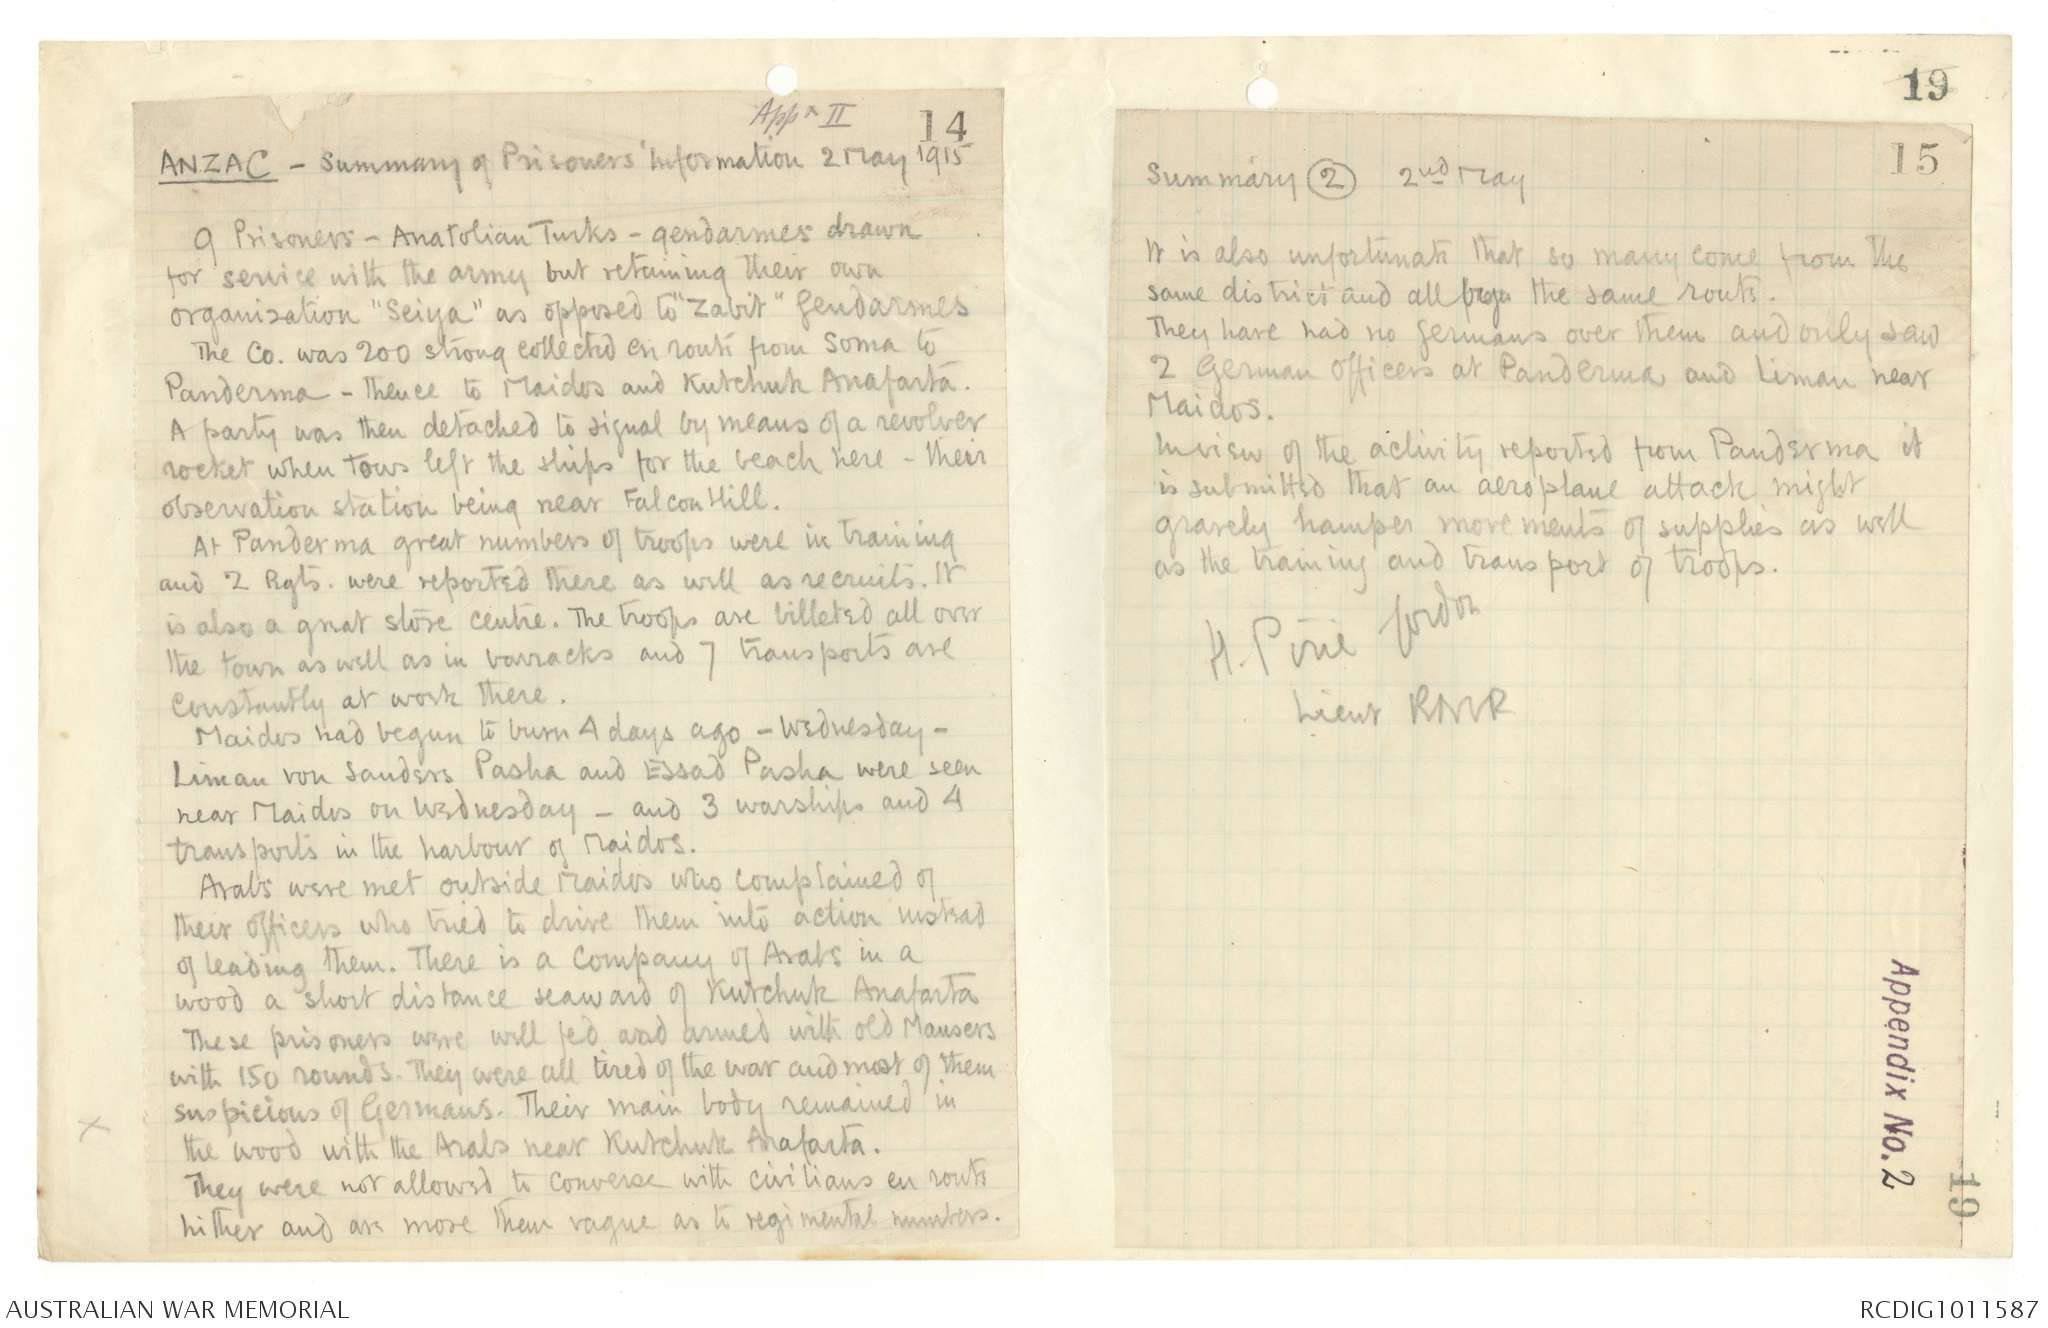 Appx II
14
ANZAC - Summary of Prisoners' Information 2 May 1915
9 Prisoners - Anatolian Turks - gendarmes drawn
for service with the army but retaining their own
organisation "Seiya" as opposed to "Zabit" Gendarmes
The Co. was 200 strong collected en route from Soma to
Panderma - thence to Maidos and Kutchuk Anafarta.
A party was then detached to signal by means of a revolver
rocket when tows left the ships for the beach here - their
observation station being near Falcon Hill.
At Panderma great numbers of troops were in training
and 2 Rgts. were reported there as well as recruits. It
is also a great store centre. The troops are billeted all over
the town as well as in barracks and 7 transports are
constantly at work there.
Maidos had begun to burn 4 days ago - Wednesday -
Liman von Sanders Pasha and Essad Pasha were seen
near Maidos on Wednesday - and 3 warships and 4
transports in the harbour of Maidos.
Arabs were met outside Maidos who complained of
their officers who tried to drive them into action instead
of leading them. There is a Company of Arabs in a
wood a short distance seaward of Kutchuk Anafarta
These prisoners were well fed and armed with old Mausers
with 150 rounds. They were all tired of the war and most of them
suspicious of Germans. Their main body remained in
the wood with the Arabs near Kutchuk Anafarta.
They were not allowed to converse with civilians en route
hither and are more than vague as to regimental numbers.
X
19
15
Summary 2 2nd May
It is also unfortunate that so many come from the
same district and all the same route.
They have had no Germans over them and only saw
2 German officers at Panderma and Liman near
Maidos.
In view of the activity reported from Panderma it
is submitted that an aeroplane attack might
gravely hamper movements of supplies as well
as the training and transport of troops.
H. Pirie Gordon
Lieut RNVR
Appendix No. 2
19
AUSTRALIAN WAR MEMORIAL
RCDIG1011587